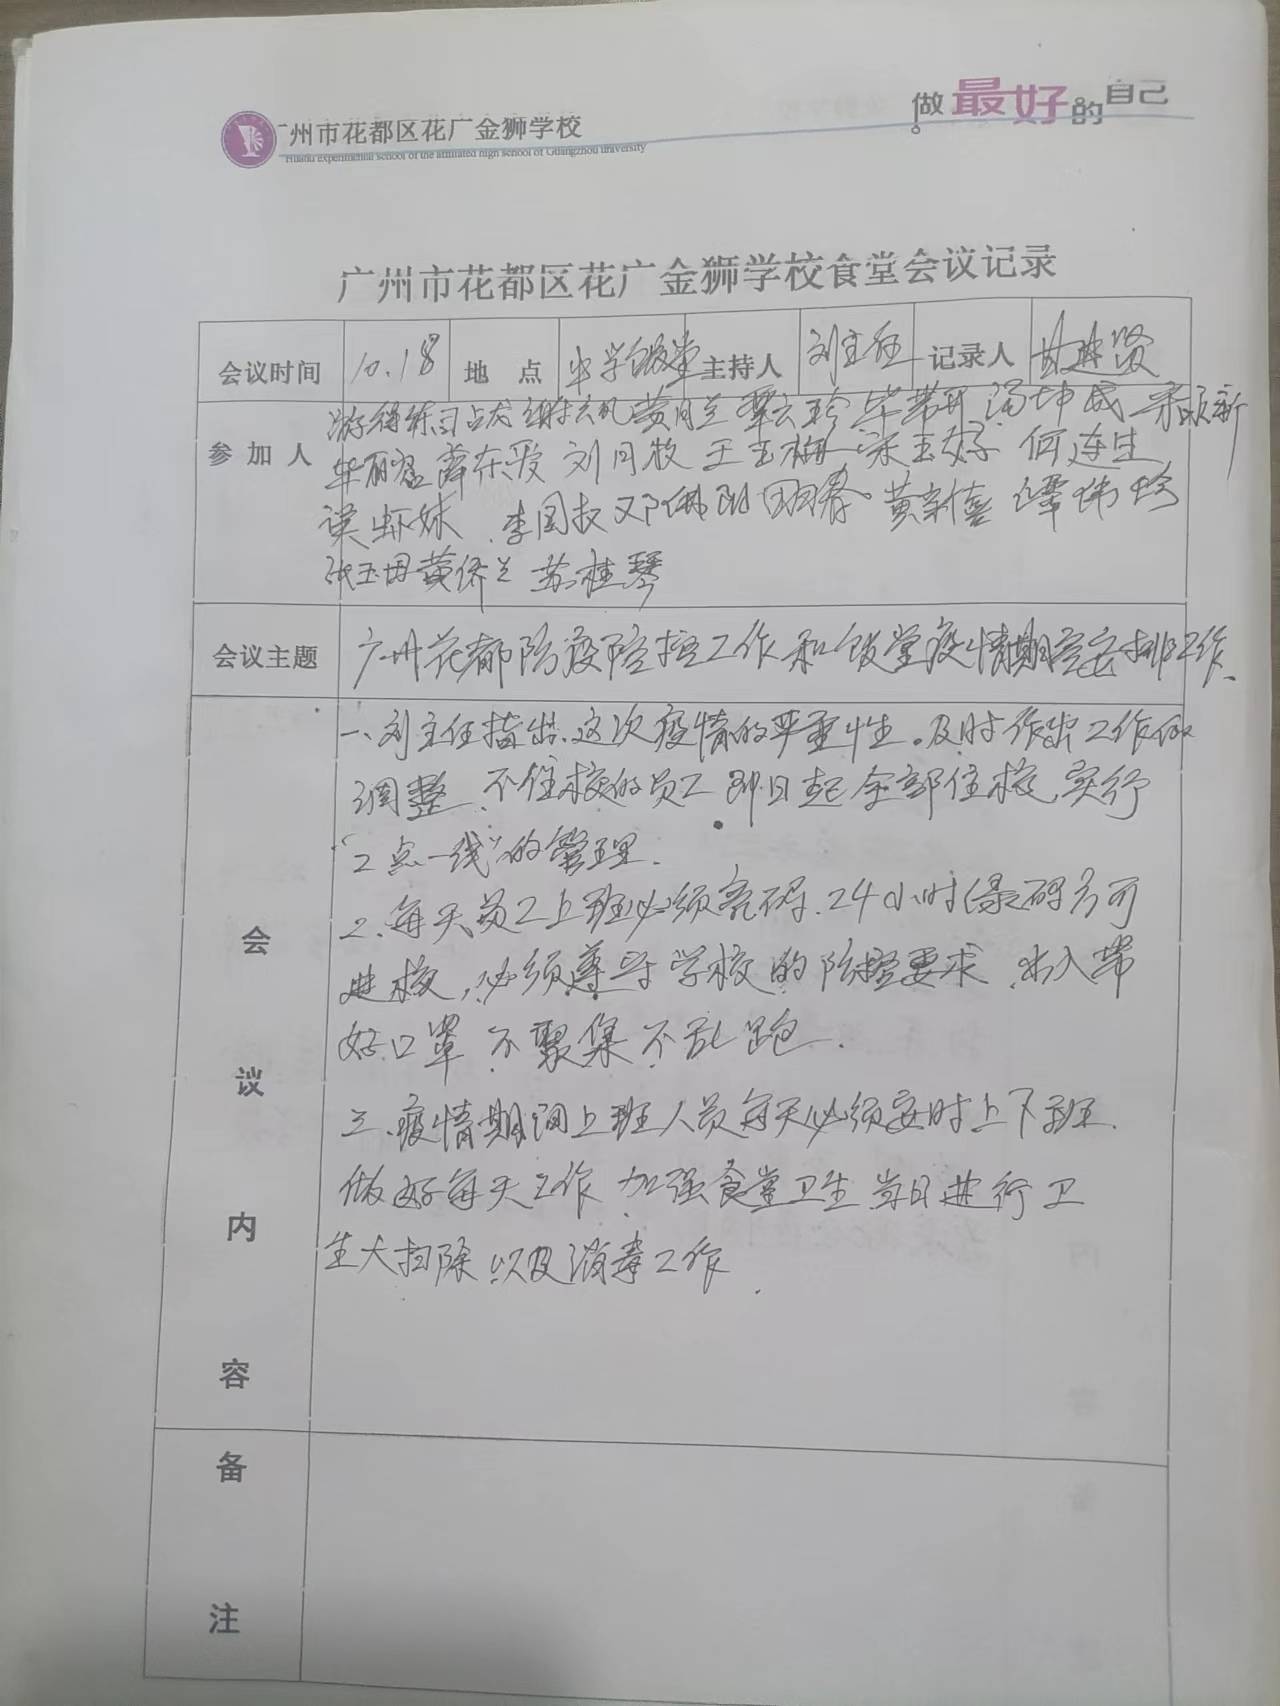 广州市花都区花广金狮学校
Huadu experimental school of the affiliated high school of Guangzhou university
做最好的自己
广州市花都区花广金狮学校食堂会议记录
会议时间 10.18 地点 中学饭堂 主持人 刘主任 记录人
参加人 黄月兰 覃云珍 毕带开 汤坤成
刘月牧 王玉梅 宋玉好 何连生
李国权 黄新喜 谭伟珍
黄侨兰 苏桂琴
会议主题 广州花都防疫防控工作和饭堂疫情期间安排工作.
会议内容
一、刘主任指出.这次疫情的严重性.及时作出工作的
调整、不住校的员工即日起全部住校.实行
“2点一线”的管理.
2.每天员工上班必须亮码.24小时绿码方可
进校,必须遵守学校的防控要求.出入带
好口罩 不聚集不乱跑.
三.疫情期间上班人员每天必须按时上下班.
做好每天工作.加强食堂卫生 当日进行卫
生大扫除以及消毒工作.
备注